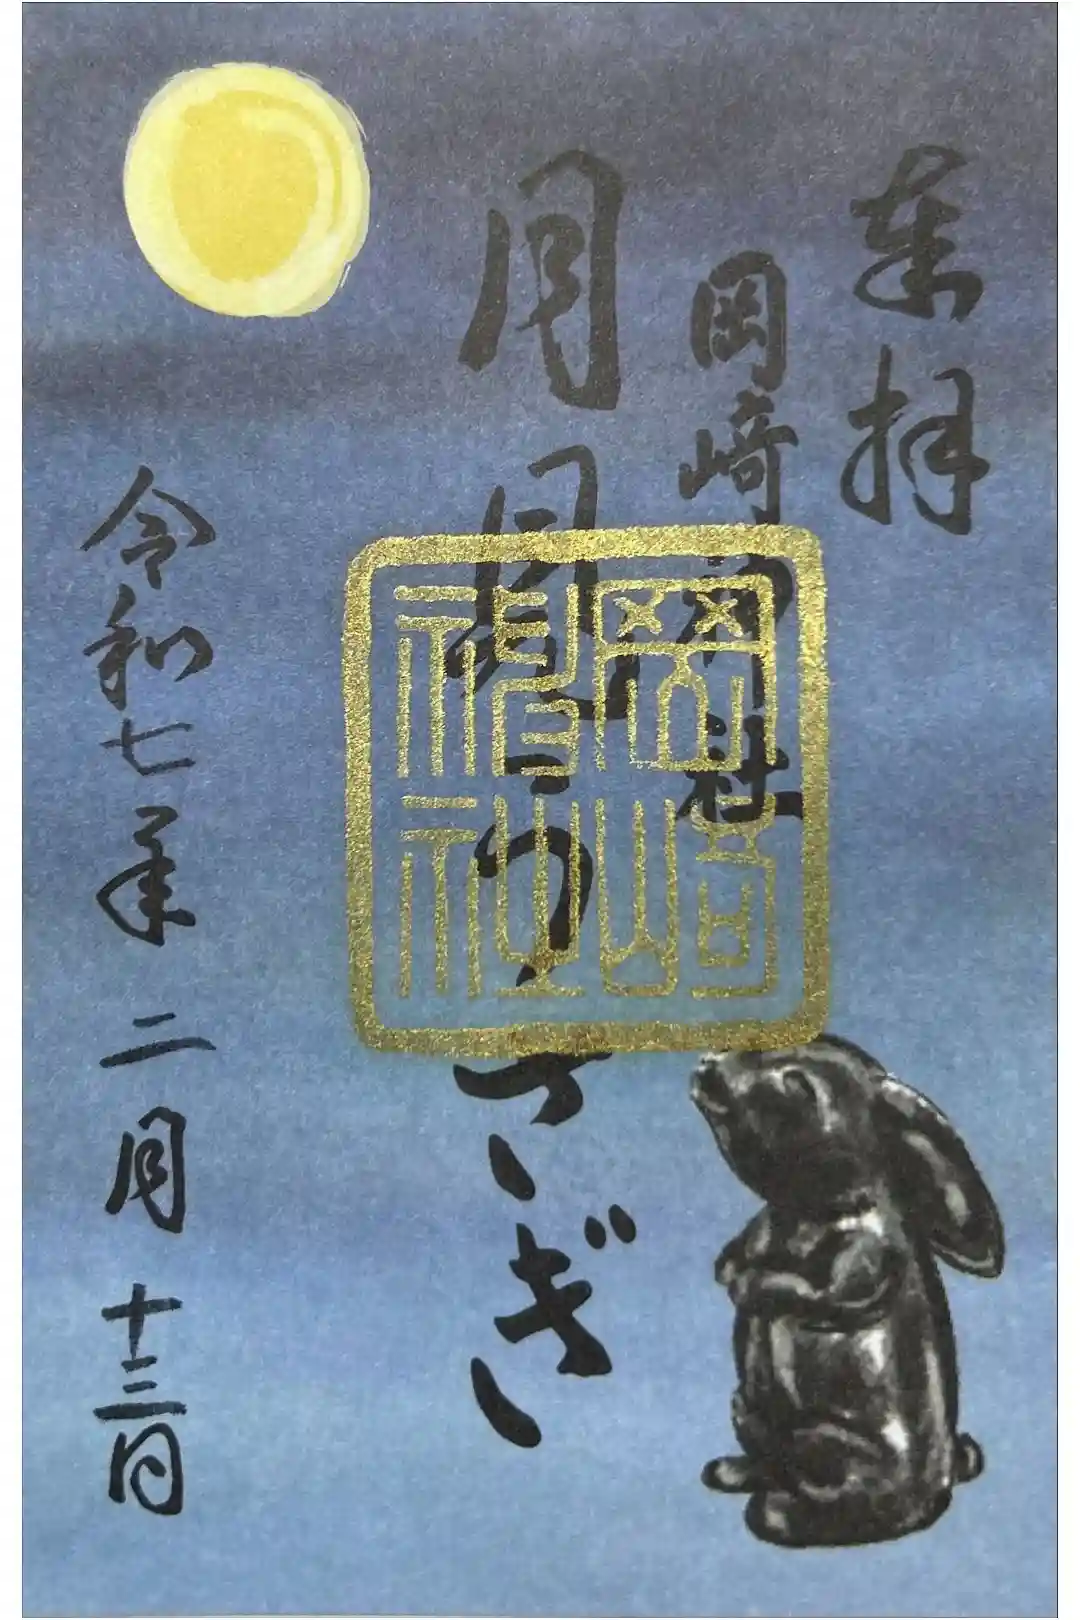 奉拝
岡崎神社
月見うさぎ
令和七年二月十三日
岡崎
神社